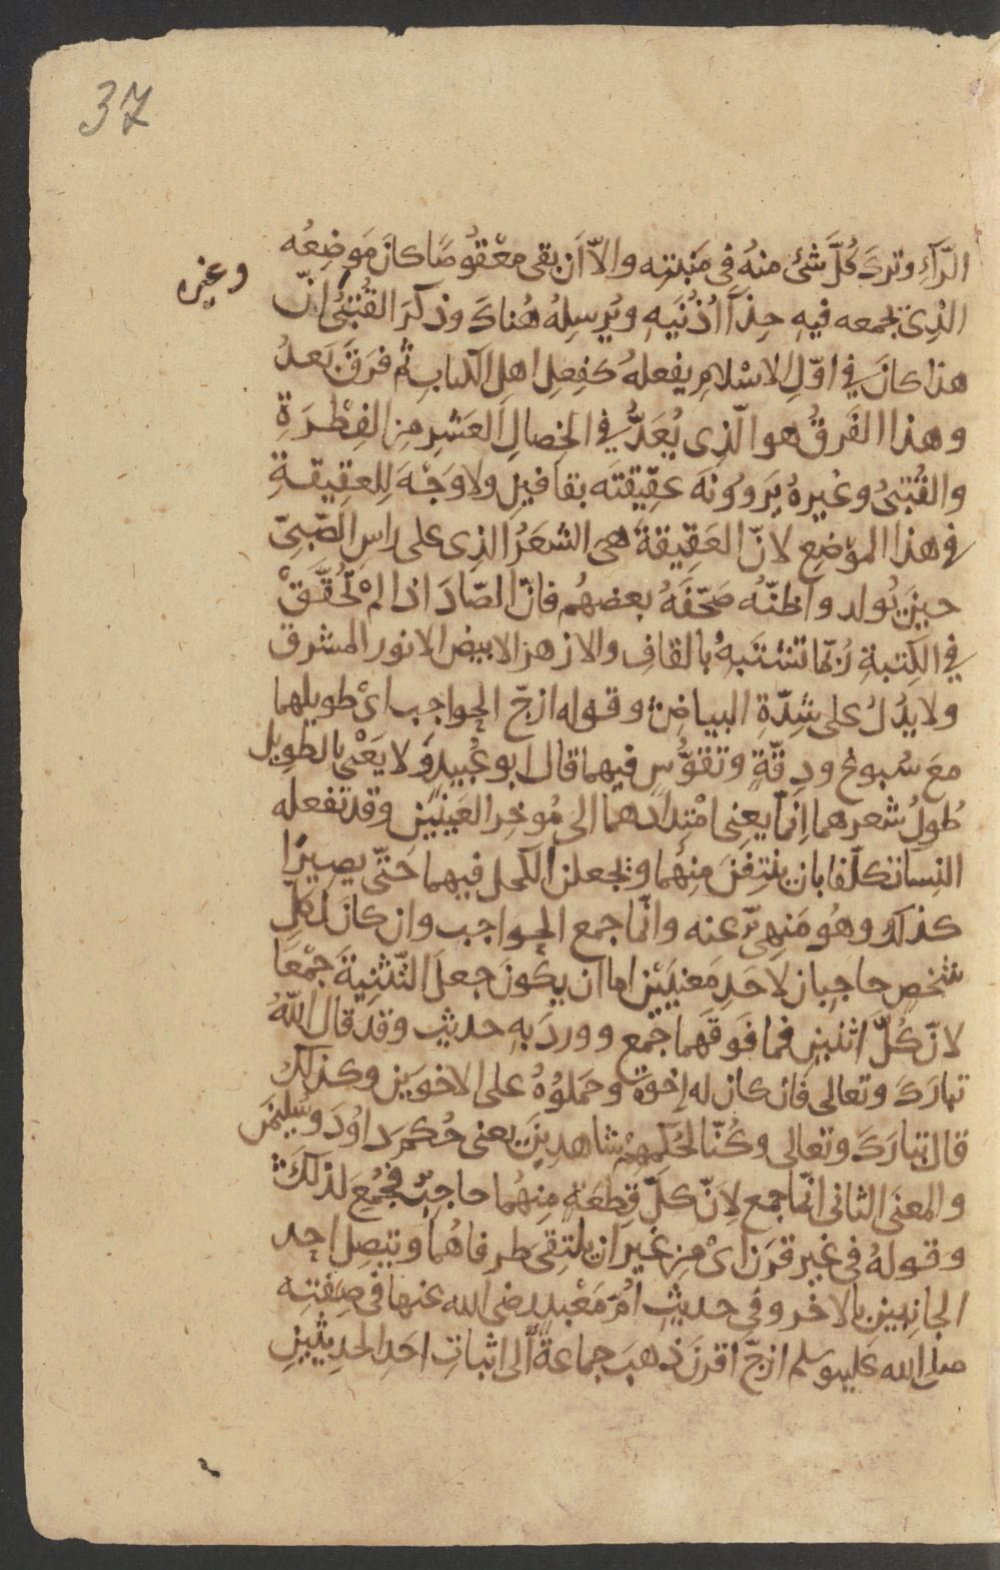 37
الرَّآءِ وترك كُلَّ شئ منهُ فى مَنبته والاّ ان بقى معْقُوصًا كانَ مَوضِعُه
وغيره
الذِى يجمعه فيهِ حِذآَ اُذُنَيهِ ويُرسِلهُ هُناكَ وذكرَ القُتَبىُّ انّ
هذا كانَ فى اوّلِ الاسْلامِ يفعلهُ كَفِعلِ اهلِ الكتابِ ثم فرَقَ بَعدُ
وهذا الفَرقُ هو الّذِى يُعَدُّ فى الخصالِ العَشرِ مِن الفِطْرَةِ
والقُتَبىُّ وغيرهُ يَروُونَه عقِيقتَه بقافينِ ولا وَجْهَ لِلعقِيقةِ
فى هذا الموْضِعِ لانّ العَقِيقةَ هى الشعَرُ الذِى على راسِ الصَّبِىّ
حينَ يُولد واظنّهُ صَحّفَهُ بعضهُم فانّ الصّادَ اذا لمْ تُحَقَّقْ
فى الكِتبةِ رُبّما تشتَبِهُ بالقافِ والازهر الابيض الانور المشرق
ولا يدُلُ على شِدّةِ البياضِ وقوله ازجّ الحواجب اىْ طويلهما
معَ سُبوغٍ ودِقّةٍ وتقوُّسٍ فيهما قال ابو عُبيدٍ وَلا يَعْنى بالطويل
طُولُ شعرهما اِنّما يعنى امْتِدادَهما الى مُوخِرِ العَينَينِ وقد تفعله
النسا تكلّفا بان ينتِفنَ منهُما ويجعلن الكحل فيهما حَتّى يصيرَا
كذلك وهُو مَنهِىّ عنه وانّما جمع الحواجب وان كانَ لكلّ
شخصٍ حاجبان لاحَدِ مَعنيَيْنِ اما ان يكونَ جعلَ التّثنِيةَ جمْعًا
لانّ كُلَّ اثنينِ فما فَوقَهما جَمْع ووردَ بهِ حديثٌ وقد قال اللّهُ
تبارَكَ وتعالى فان كان له اِخوة وحَملوُهُ على الاخوَينِ وكذلك
قال تبارَكَ وتعالى وكُنّا لحُكمِهمْ شاهدِينَ يعنى حُكمَ داوُدَ وسُليمٰنَ
والمعنَى الثانى انّما جمع لاَنّ كلّ قِطعَةٍ مِنهُما حاجِبٌ فجُمِعَ لذلكَ
وقولهُ فى غير قرَن اىْ مِن غيرِ ان يلتقِىَ طرفاهُما ويتصِل احد
الجانبين بالاخر وفى حديثِ امّ مَعْبدٍ رضى الله عنها فى صِفتِه
صلى الله عليه وسلم ازجّ اقرنَ ذهبَ جماعةٌ الى اثباتِ احَدِ الحديثينِ